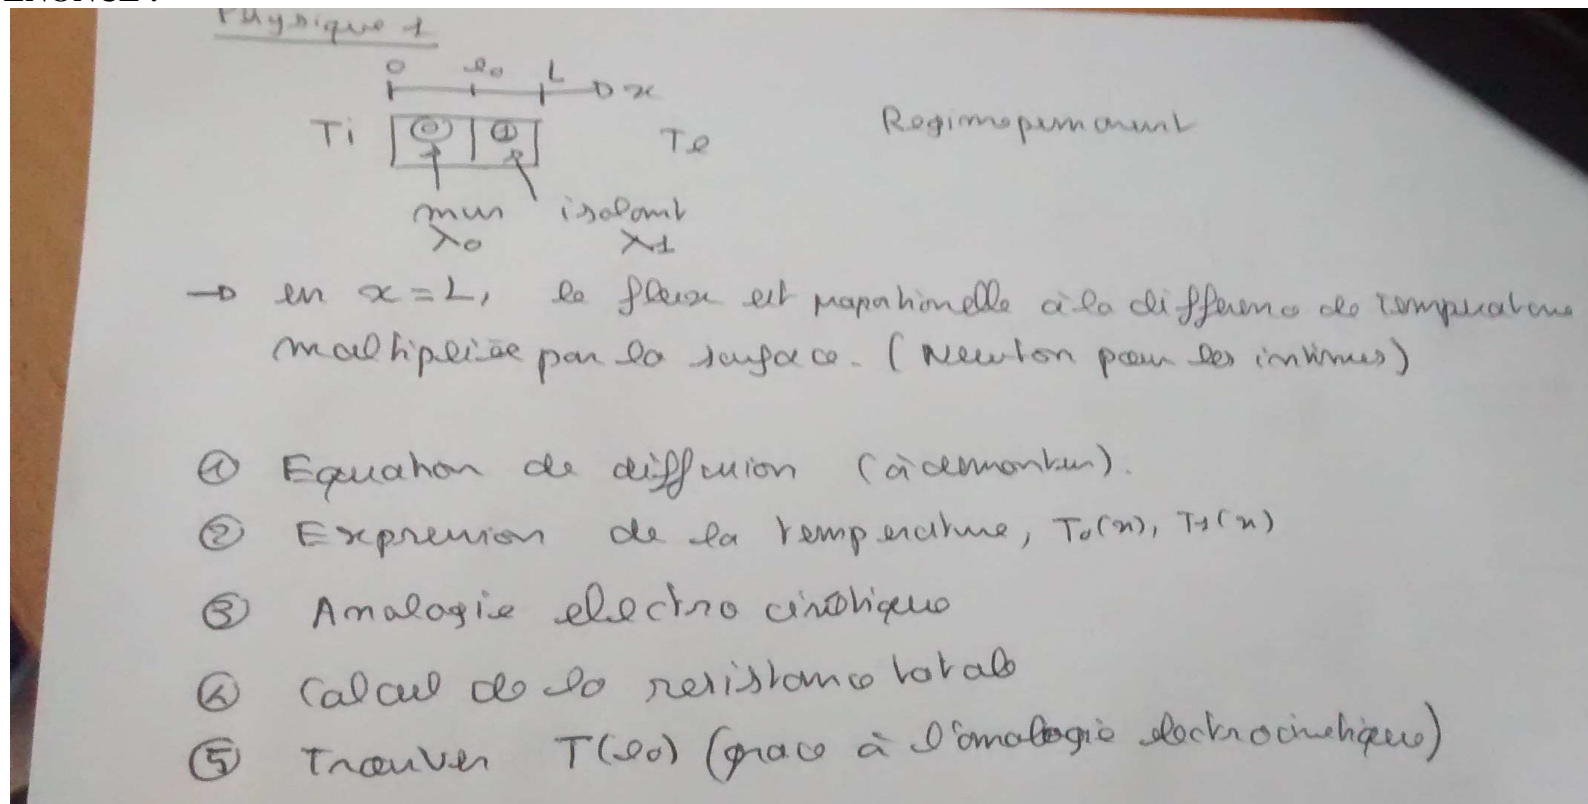 ENONCE :
Physique 1
0 e₀ L x
Ti ⓪ ① Te Regime permanent
mur isolant
λ0 λ1
→ en x = L, le flux est proportionnelle à la difference de temperature
multipliée par la surface. (Newton pour les intimes)
① Equation de diffusion (à demontrer).
② Expression de la temperature, T₀(x), T₁(x)
③ Analogie electro cinétique
④ Calcul de la resistance totale
⑤ Trouver T(e₀) (grace à l'analogie electrocinetique)